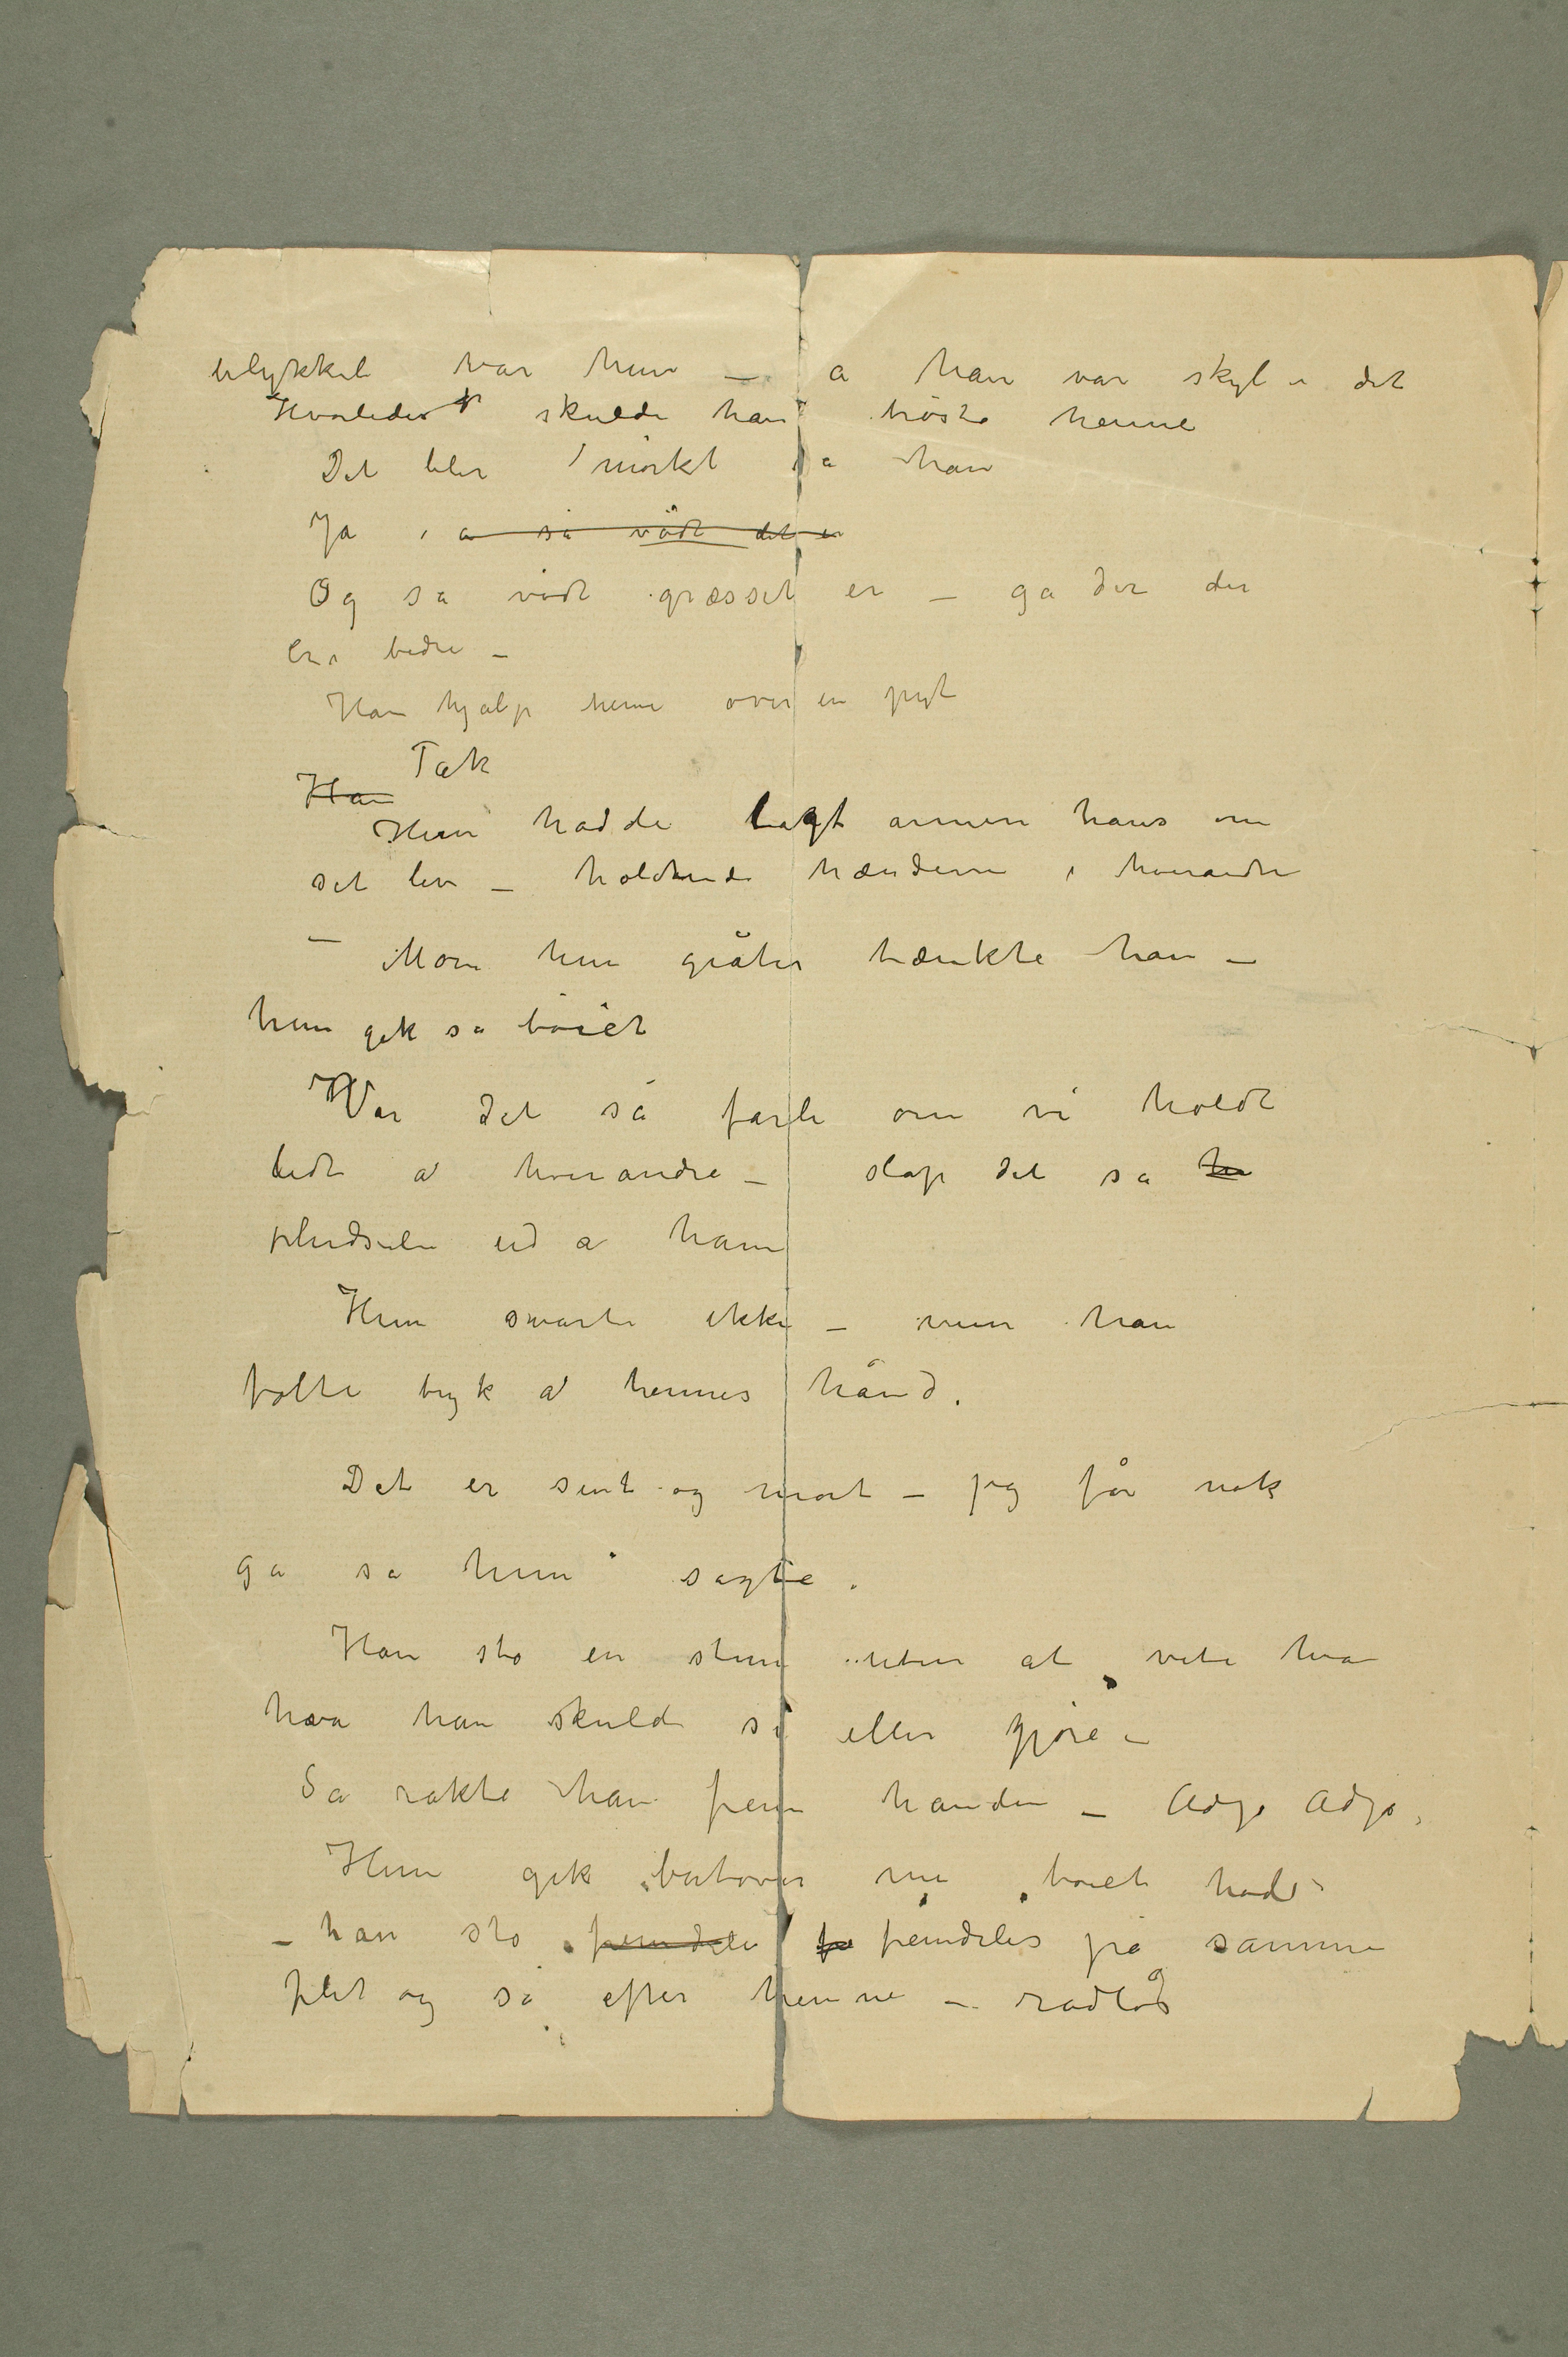 ulykkel var hun – å han var skyl i det
Hvorledes skulde han trøste henne
Det blir mørkt sa han
Ja, a så vådt det er
Og så vådt græsset er – gå der der
er bedre –
Han hjalp henne over en pyt
Tak
Han
Hun hadde lagt armen hans om
set liv – holdende hænderne i hverandre
– Mon hun gråter tænkte han –
hun gik så bøiet
Var det så farli om vi holdt
lidt a hverandre – slap det så hu
pludseli ud a ham
Hun svarte ikke – men han
følte tryk a hennes hånd.
Det er sent og mørt – jeg får nok
gå sa hun sagte.
Han sto en stun uten at vite hva
hva han skulde si eller gjøre –
Så rakte han frem hånden – Adjø Adjø,
Hun gik bortover me bøiet hode
– han sto fremdele fr fremdeles på samme
plet og så efter henne – rådløs